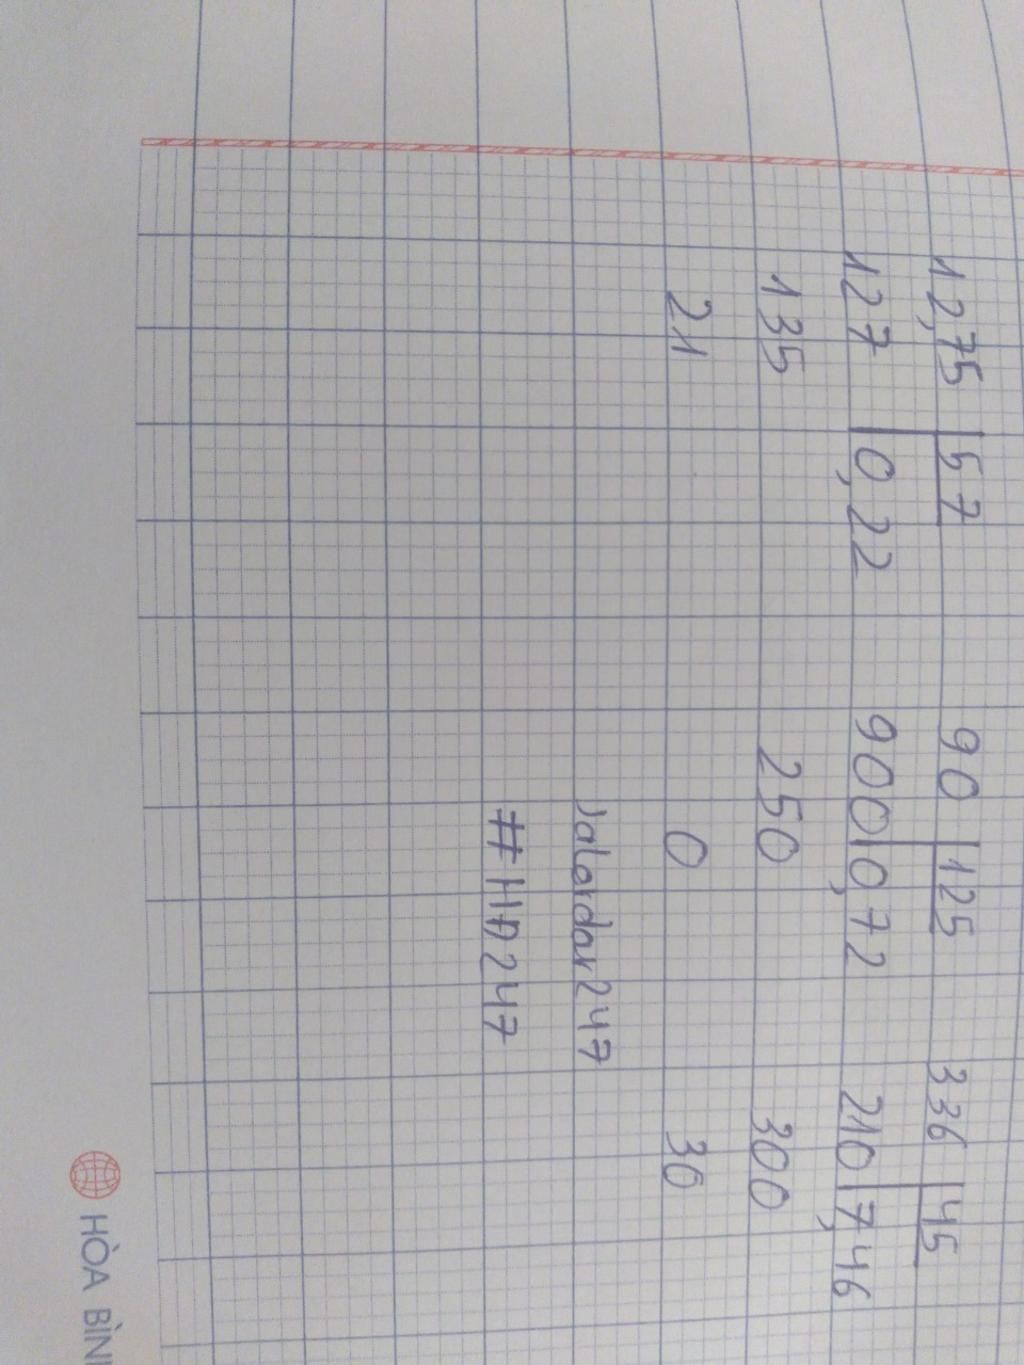 12,75 57 90 125 336 45
127 0,22 900 0,72 210 7,46
135 250 300
21 0 30
Jalordar247
#HD247
HÒA BÌN